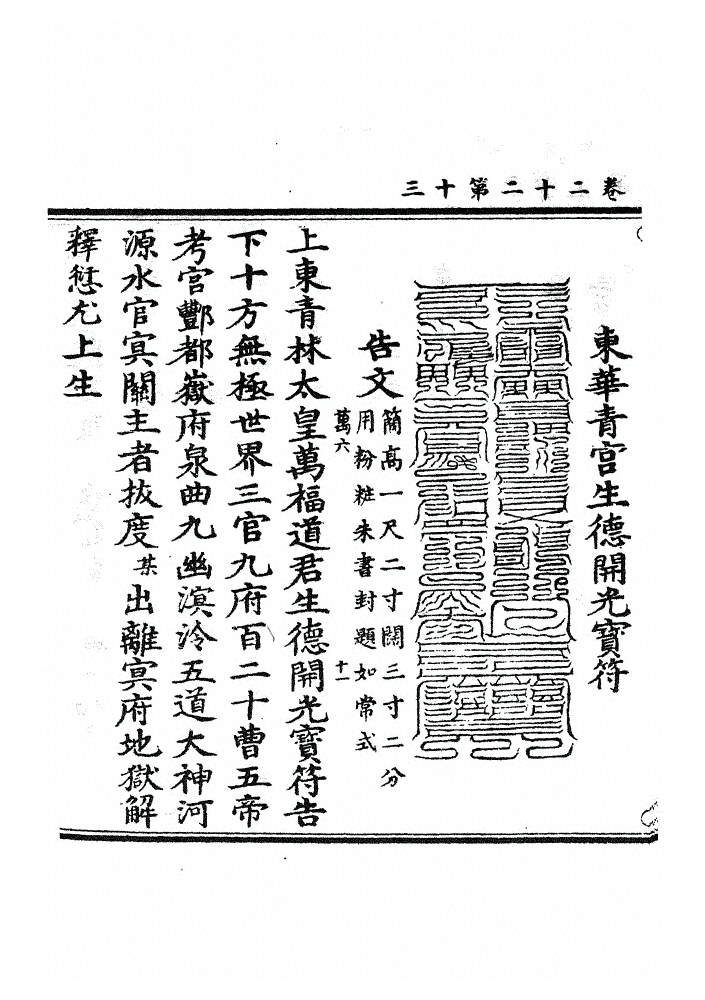 卷二十二第十三
東華青宮生德開光寶符
告文
簡高一尺二寸闊三寸二分
用粉粧朱書封題如常式
萬六
十一
上東青林太皇萬福道君生德開光寶符告
下十方無極世界三官九府百二十曹五帝
考官酆都嶽府泉曲九幽溟泠五道大神河
源水官㝠關主者拔度某出離㝠府地獄解
釋愆尤上生